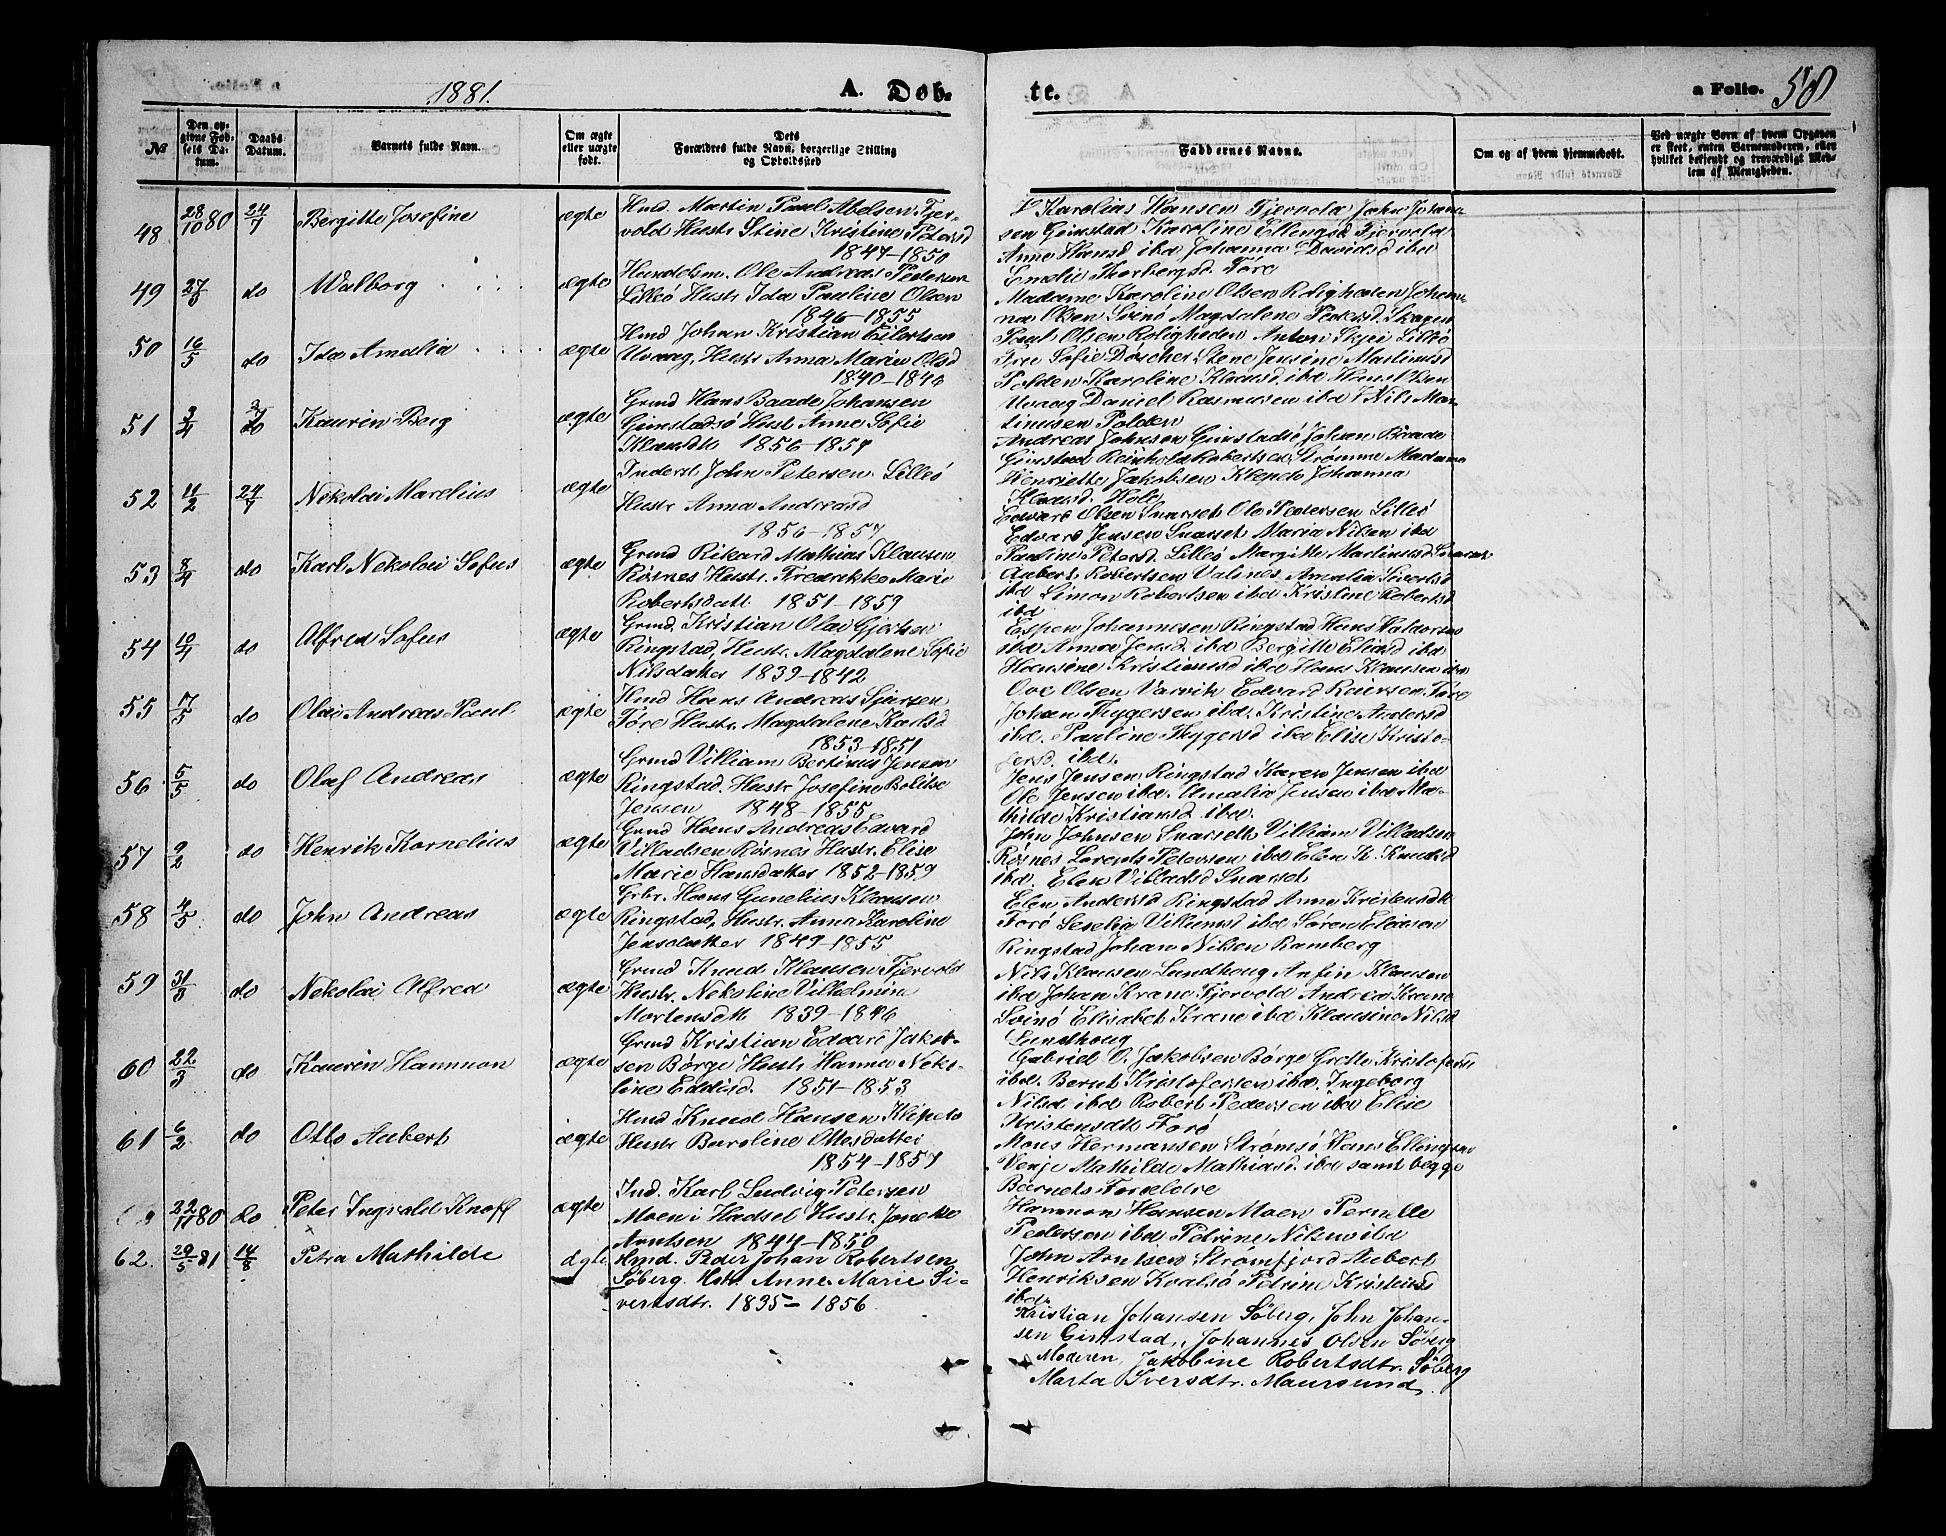 1881.
A. Döb-
te.
a Folio. 58
№
Den op-
givne Föd-
sels Da-
tum.
Daabs
Datum.
Barnets fulde Navn.
Om ægte
eller uægte
født.
Dets
Forældres fulde Navn, borgerlige Stilling
og Opholdssted
Faddernes Navne.
Om og af hvem hjemmedøbt.
Ved uægte Børn af hvem Opgaven
er skeet, enten Barnemoderen, eller
hvilket bekjendt og troværdigt Med-
lem af Menigheden.
48 28/10 80 24/7 Bergitte Josefine ægte
Hmd Martin Paul Abelsen Fjer-
vold Hustr Stine Kristine Petersd
1847-1850
Karelius Hansen Fjervold John Johan-
sen Gimstad Karoline Ellingsd Fjervold
Anne Hansd ibd Johanna Davidsd ibd
Emelie Thorbergsd. Före
49 27/3 do Walborg ægte
Hmdlsm. Ole Andreas Pedersen
Lilleö Hustr Ida Pauline Olsen
1846-1855
Madame Karoline Olsen Roligheden Johan-
na Olsen Svinö Magdalene Pedersd. Skagen
Paul Olsen Roligheden Anton Skjei Lilleö
50 16/5 do Ida Amalia ægte
Hmd Johan Kristian Eilertsen
Uvaag, Hustr Anna Marie Olsd
1840-1843
Fru Sofie Döscher Stene Jensine Martinusd
Polden Karoline Klausd. ibd Hans Olsen
Uvaag Daniel Rasmusen ibd Nils Mar-
tinusen Polden
51 3/4 do Kaurin Berg ægte
Grmd Hans Baade Johansen
Gimstadsö Hust Anne Sofie
Klausdtr 1856-1854
Andreas Johnsen Gimstadsö Johan Baade
Gimstad Reinhold Robertsen Strömme Madame
Henriette Jakobsen Klepdo Johanna
Klausd. Hole
52 11/2 24/7 Nekolai Marelius ægte
Inderst John Petersen Lilleö
Hustr Anna Andreasd
1856-1857
Edvard Olsen Snarset Ole Pedersen Lilleö
Edvard Jensen Snarset Maria Nilsen ibd
Pauline Petersd. Lilleö Margitte Martinusd Snarset
53 8/4 do Karl Nekolai Sofus ægte
Grmd Rikard Mathias Klausen
Rösnes Hustr. Fredrikke Marie
Robertsdatt. 1851-1859
Aubert Robertsen Valsnes Amalia Sivertsd
ibd Simon Robertsen ibd Kristine Robertsd
ibd
54 10/4 do Alfred Sofus ægte
Grmd. Kristian Olai Gjertsen
Ringstad, Hustr. Magdalene Sofie
Nilsdatter 1839-1842
Espen Johannesen Ringstad Hans Haldorsen
ibd Anne Jensd ibd Bergitte Eliasd ibd
Hansine Kristiansd ibd Hans Klausen ibd
55 17/5 do Olai Andreas Paul ægte
Hmd Hans Andreas Sjursen
Före Hustr. Magdalene Karlsd
1853-1851
Ove Olsen Varvik Edvard Reiersen Före
Johan Thygersen ibd. Kristine Andersd
ibd. Pauline Thygersd ibd Elise Kristo-
fersd. ibd.
56 5/5 do Olaf Andreas ægte
Grmd Villiam Bertinus Jensen
Ringstad. Hustr Josefine Bolitse
Jensen 1848-1855
Jens Jensen Ringstad Karen Jensen ibd
Ole Jensen ibd. Amalia Jensen ibd Ma-
thilde Kristiansd ibd.
57 9/2 do Henrik Kornelius ægte
Grmd Hans Andreas Edvard
Villadsen Rösnes Hustr. Elise
Marie Hansdatter 1852-1859
John Johnsen Snarseth Villiam Villadsen
Rösnes Lorents Petersen ibd Elen K. Knudsd
ibd. Elen Villadsd Snarset
58 4/5 do John Andreas ægte
Grbr. Hans Gunelius Klausen
Ringstad, Hustr. Anna Karoline
Jensdatter 1849-1855
Elen Andersd Ringstad Anne Kristensdtr
Forö Seselia Villumsd ibd Sören Eliasen
Ringstad Johan Nilsen Ramberg
59 31/3 do Nekolai Alfred ægte
Grmd Knud Klausen Fjervold
Hustr. Nekoline Vilhelmine
Mortensdtr 1839-1846
Nils Klausen Lundhoug Anfin Klausen
ibd Johan Krane Fjervold Andrea Krane
Svinö Elisabet Krane ibd Klausine Nilsd
Lundhoug
60 22/3 do Kaurin Hammon ægte
Grmd Kristian Edvard Jakob-
sen Börge Hustr Hanna Neko-
line Eddisd. 1851-1853
Gabriel O. Jakobsen Börge Grette Kristofersd
ibd. Bernt Kristofersen ibd. Ingeborg
Nilsd ibd Robert Pedersen ibd Elise
Kristensdtr Forö
61 6/2 do Otto Aubert ægte
Hmd Knud Hansen Klepdo
Hustr Baroline Ottosdatter
1854-1857
Mons Hermansen Strömsö Hans Ellingsen
Venje Mathilde Mathiasd. ibd samt begge
Barnets Forældre
22/11 80 do Peter Ingvald Knoff ægte
Ind. Karl Ludvig Petersen
Moen i Hadsel Hustr. Jonette
Arntsen 1844-1850
Hammon Hansen Moen Pernelle
Pedersen ibd Petrine Nilsen ibd
John Arntsen Strömfjord Aubert
Henriksen Kvalsö Petrine Kristensd
ibd.
62. 29/5 81 14/8 Petra Mathilde ægte
Hmd. Peder Johan Robertsen
Söberg. Hstr. Anne Marie Si-
vertsdtr. 1835-1856
Kristian Johansen Söberg, John Johan-
sen Gimstad, Johannes Olsen Söberg
Moderen, Jakobine Robertsdtr. Söberg
Marta Iversdtr. Maursund.